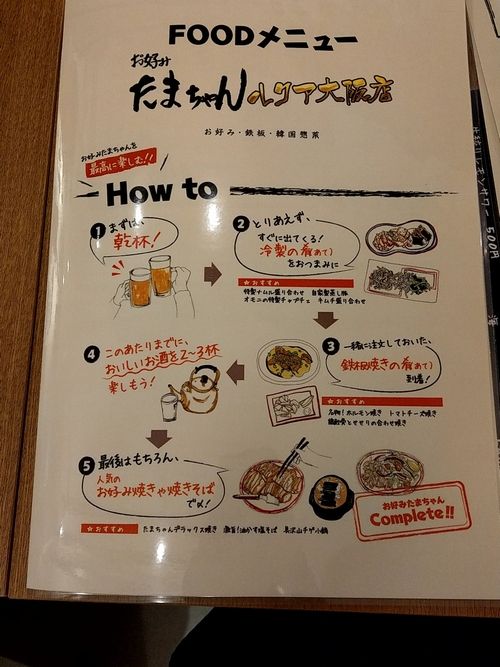 FOODメニュー
お好み
たまちゃん ルクア大阪店
お好み・鉄板・韓国惣菜
お好みたまちゃんを
最高に楽しむ!!
How to
1 まずは、
乾杯!
2 とりあえず、
すぐに出てくる!
冷製の肴(あて)
をおつまみに
★おすすめ
特製ナムル盛り合わせ 自家製蒸し豚
オモニの特製チャプチェ キムチ盛り合わせ
3 一緒に注文しておいた、
鉄板焼きの肴(あて)
到着!
★おすすめ
名物!ホルモン焼き トマトチーズ焼き
鶏軟骨とせせりの合わせ焼き
4 このあたりまでに、
おいしいお酒を2~3杯
楽しもう!
5 最後はもちろん、
人気の
お好み焼きや焼きそば
で〆!
★おすすめ
たまちゃんデラックス焼き 激旨!油かす塩そば 具沢山チゲ小鍋
お好みたまちゃん
Complete!!
生搾りレモンサワー
500円